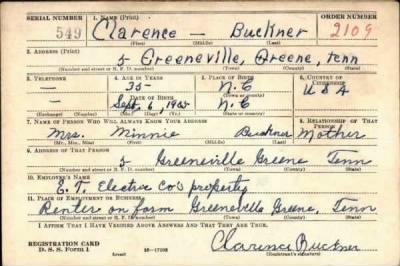 SERIAL NUMBER 1. NAME (Print) ORDER NUMBER
549 Clarence — Buckner 2109
(First) (Middle) (Last)
2. ADDRESS (Print)
5 Greeneville, Greene, Tenn
(Number and street or R. F. D. number) (Town) (County) (State)
3. TELEPHONE 4. AGE IN YEARS 5. PLACE OF BIRTH 6. COUNTRY OF CITIZENSHIP
— 35- N.C U S A
DATE OF BIRTH
— Sept. 6, 1905 N.C
(Mo.) (Day) (Yr.) (State or country)
7. NAME OF PERSON WHO WILL ALWAYS KNOW YOUR ADDRESS 8. RELATIONSHIP OF THAT PERSON
Mrs. Minnie Buckner Mother
(Mr., Mrs., Miss) (First) (Middle) (Last)
9. ADDRESS OF THAT PERSON
5 Greeneville Greene Tenn
(Number and street or R. F. D. number) (Town) (County) (State)
10. EMPLOYER'S NAME
E. T. Elective Co's property
11. PLACE OF EMPLOYMENT OR BUSINESS
Renter on farm Greeneville Greene, Tenn
(Number and street or R. F. D. number) (Town) (County) (State)
I AFFIRM THAT I HAVE VERIFIED ABOVE ANSWERS AND THAT THEY ARE TRUE.
REGISTRATION CARD Clarence Buckner
D. S. S. Form 1 (Registrant's signature)